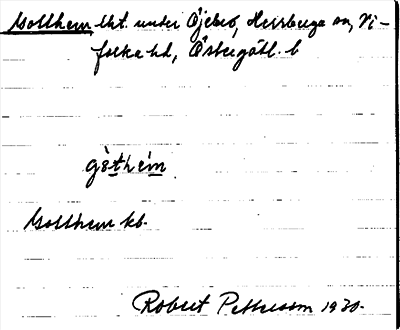 Gotthem, lht. under Öjebro, Herrberga sn, Vi-
folka hd, Östergötl. l.
gòthèm
Gotthem kb.
Robert Pettersson 1930.